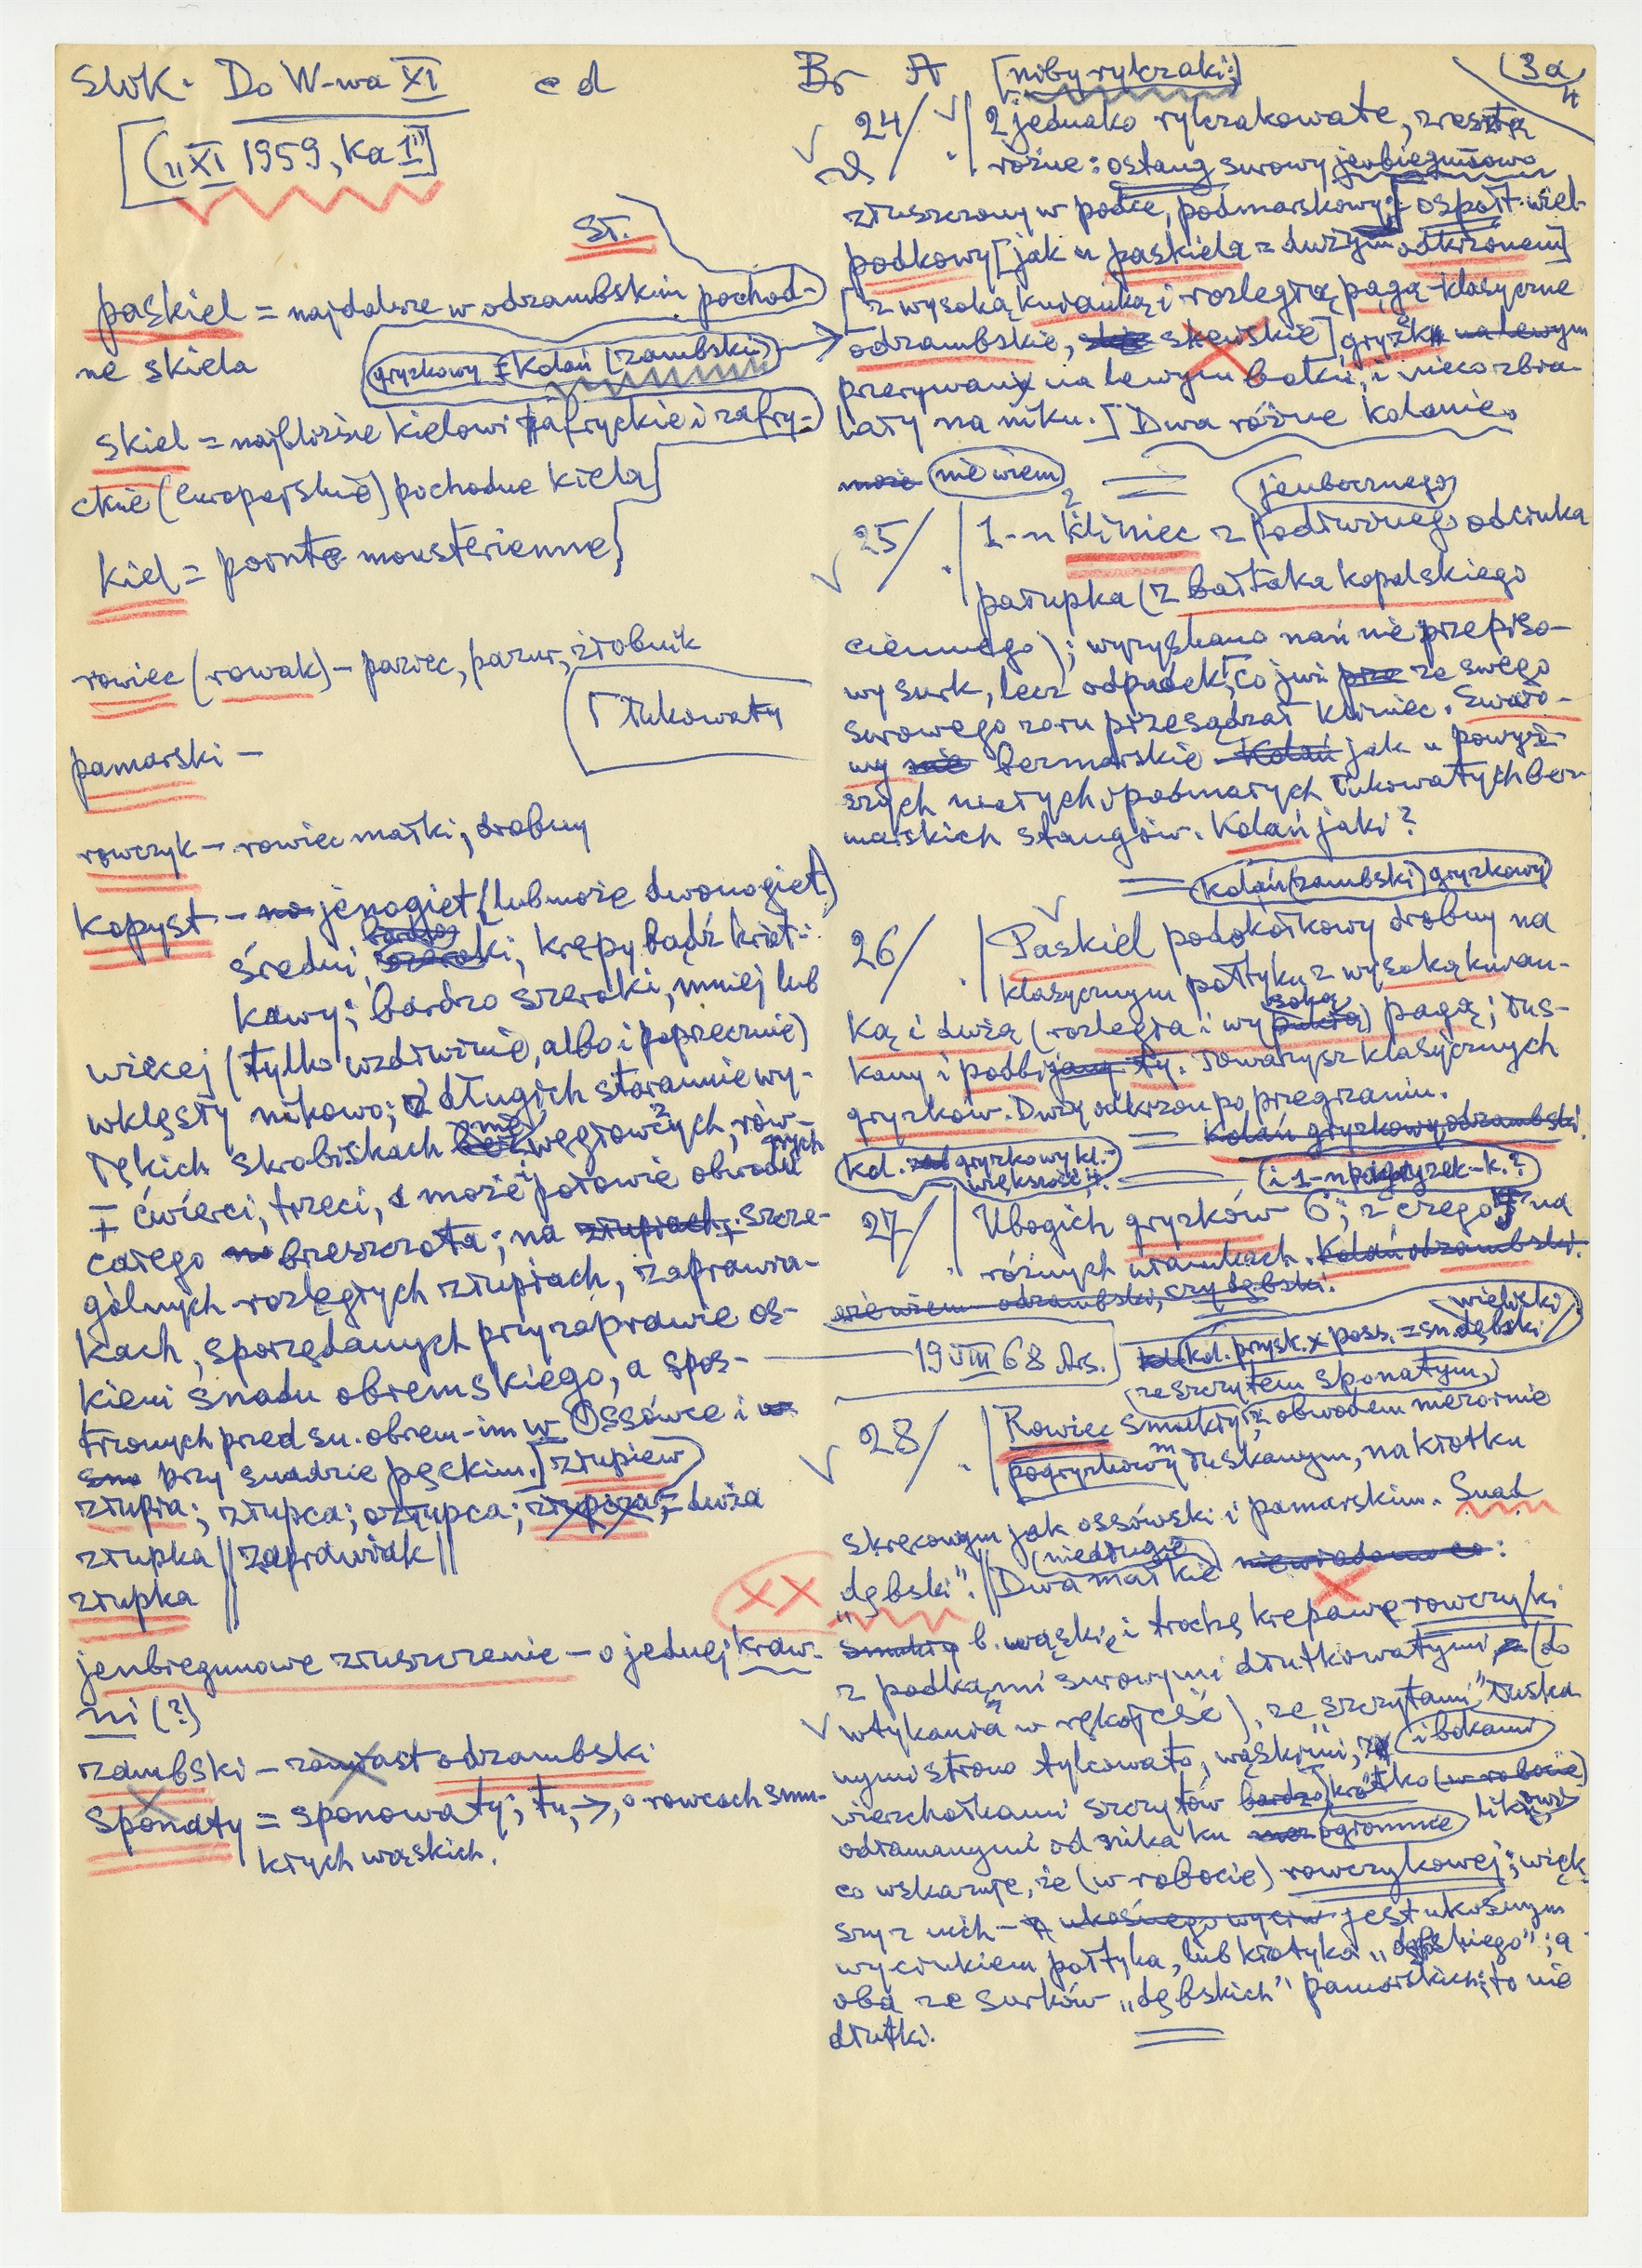 SWK. Do W-wa XI c d
[(„XI 1959, Ka 1")]
St.
paskiel = najdalsze w odzambskim pochod-
ne skiela
gryzkowy = Kolań (zambski)
skiel = najbliższe kielowi afryckie i zafry-
ckie (europejskie) pochodne kiela
kiel = pointe moustérienne
rowiec (rowak) – paziec, pazur, żłobnik
łukowaty
pamarski –
rowczyk – rowiec mały, drobny
kopyst – jenogiet (lub może dwonogiet)
średni, krępy bądź krót-
kawy; bardzo szeroki, mniej lub
więcej (tylko wzdłużnie, albo i poprzecznie)
wklęsły nikowo; z długich starannie wy-
łękich skrobiskach węgłowych, rów-
∓ ćwierci, trzeci, i może i połowie obwodu
całego brzeszczota; na szcze-
gólnych rozległych złupiach, zaprawia-
kach, sporządzanych przy zaprawie oś-
kiem snadu obremskiego, a spos-
trzonych przed sn. obrem-im w Ossówce i
przy snadzie pęckim.] złupień
złupia; złupca; ozłupca; = duża
złupka || zaprawiak ||
złupka
jenbiegunowe złuszczenie – o jednej kraw.
ni (?)
zambski – zamiast odzambski
sponaty = sponowaty; tu, →, o rowcach smu-
kłych wąskich.
Br A [niby rylczaki:]
3a/4
24/ 2 jednako rylczakowate, zresztą
różne: ostang surowy jenbiegunowo
złuszczony w podce, podmarskowy; ospołt. wiel-
podkowy [jak u paskiela z dużym odkrzonem]
[z wysoką kniauką i rozległą pagą – klasyczne
odzambskie, skewskie] gryzk na lewym
przerywany na lewym boku, i nieco zbia-
łały na niku.] Dwa różne kolanie.
może nie wiem
=
jenbocznego
25/ 1-n kliniec z podłużnego odcinka
patupka (z bałtaka kopalskiego
ciemnego); wyzyskano nań nie przepiso-
wy surk, lecz odpadek, co już ze swego
surowego zaru przesądzał kliniec. Swaro-
wy bezmarskie jak u powyż-
szych małych i podmałych łukowatych bez-
marskich stangów. Kolań jaki?
= Kolań (zambski) gryzkowy
26/ Paskiel podokołkowy drobny na
klasycznym połtyku z wysoką kniau-
ką i dużą (rozległą i wysoką) pagą; łus-
kany i podbity. Towarzysz klasycznych
gryzków. Duży odkrzon po przegrzaniu.
= Kolań gryzkowy odzambski.
kol. gryzkowy kl.-
większość.
27/ Ubogich gryzków 6; z czego 5 na
różnych ułamkach. Kolań odzambski.
nie wiem – odzambski, czy dębski.
19 VIII 68 Ars.
kol. prysk. x poss. = sn. dębski
wielicki
ze szczytem sponatym,
28/ Rowiec smukły, z obwodem nierównie
pogryzkowym łuskanym, na krótku
skręconym jak ossówski i pamarskim. Snad
„dębski". || Dwa małe niewiadomo co:
(niedługie)
b. wąskie i trochę krępawe rowczyki
z podkami surowymi dłutkowatymi (do
wtykania w rękojeść), ze „szczytami" łuska-
nymi stromo tylcowato, wąskimi, i bokami
wierzchołkami szczytów krótko (w robocie)
odłamanymi od snika ku ogromnie
co wskazuje, że (w robocie) rowczykowej; więk-
szy z nich – jest ukośnym
wycinkiem połtyka, lub krótyka „dębskiego"; a
oba ze surków „dębskich" pamarskich; to nie
dłutki.
XX